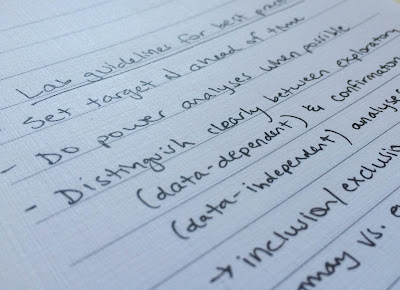 Lab guidelines for best pract
- Set target N ahead of time
- Do power analyses when possible
- Distinguish clearly between exploratory
(data-dependent) & confirmator
(data-independent) analyses
→ inclusion/exclusio
vs.